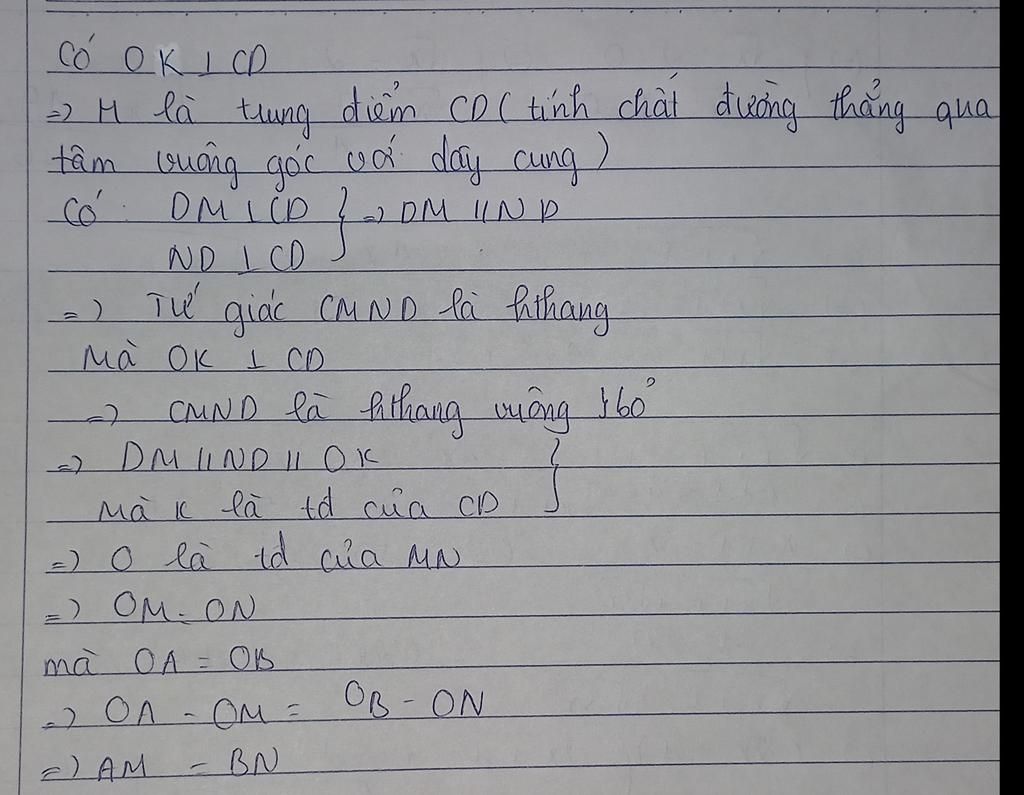 Có OK ⊥ CD
=> H là trung điểm CD ( tính chất đường thẳng qua
tâm vuông góc với dây cung )
Có DM ⊥ CD } => DM // ND
ND ⊥ CD
=> Tứ giác CMND là hthang
Mà OK ⊥ CD
=> CMND là hthang vuông
=> DM // ND // OK }
Mà K là td của CD
=> O là td của MN
=> OM = ON
mà OA = OB
=> OA - OM = OB - ON
=> AM = BN